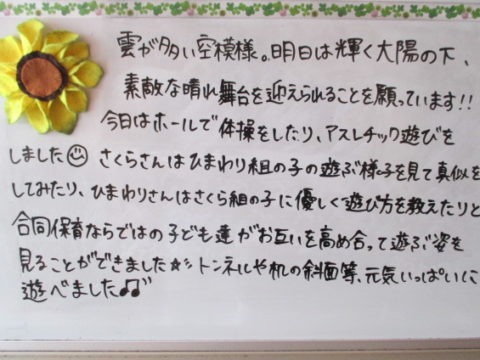 雲が多い空模様。明日は輝く太陽の下、
素敵な晴れ舞台を迎えられることを願っています!!
今日はホールで体操をしたり、アスレチック遊びを
しました☺ さくらさんはひまわり組の子の遊ぶ様子を見て真似を
してみたり、ひまわりさんはさくら組の子に優しく遊び方を教えたりと
合同保育ならではの子ども達がお互いを高め合って遊ぶ姿を
見ることができました☆彡 トンネルや机の斜面等、元気いっぱいに
遊べました♫